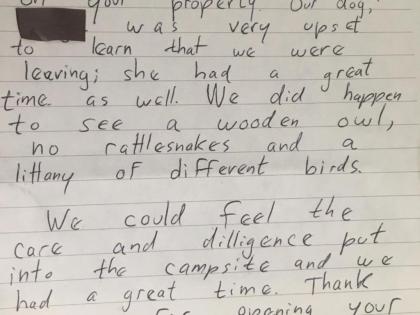 on your property. Our dog,
was very upset
to learn that we were
leaving; she had a great
time as well. We did happen
to see a wooden owl,
no rattlesnakes and a
littany of different birds.
We could feel the
care and dilligence put
into the campsite and we
had a great time. Thank
opening your